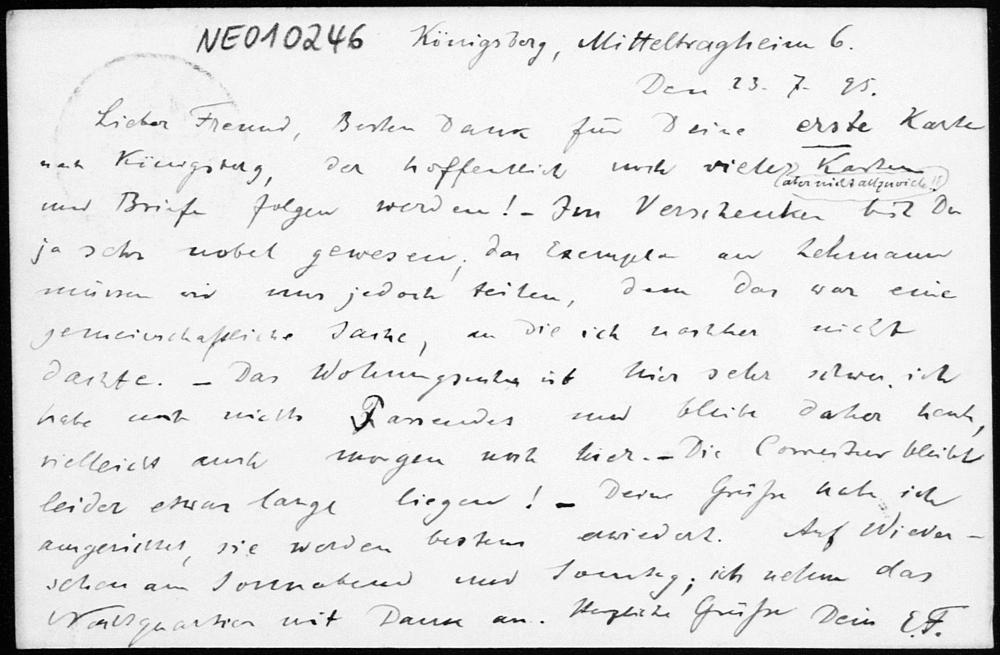 NE010246 Königsberg, Mitteltragheim 6.
Den 23. 7. 95.
Lieber Freund, Besten Dank für Deine erste Karte
nach Königsberg, der hoffentlich noch viele Karten
(aber nicht allzuviele!!)
und Briefe folgen werden! – Im Verschenken bist Du
ja sehr nobel gewesen; das Exemplar an Lehmann
müssen wir uns jedoch teilen, denn das war eine
gemeinschaftliche Sache, an die ich nachher nicht
dachte. – Das Wohnungsuchen ist hier sehr schwer, ich
habe noch nichts Passendes und bleibe daher heute,
vielleicht auch morgen noch hier. – Die Correctur bleibt
leider etwas lange liegen! – Deine Grüße habe ich
ausgerichtet, sie werden bestens erwiedert. Auf Wieder-
sehen am Sonnabend und Sonntag; ich nehme das
Nachtquartier mit Dank an. Herzliche Grüße Dein E.F.